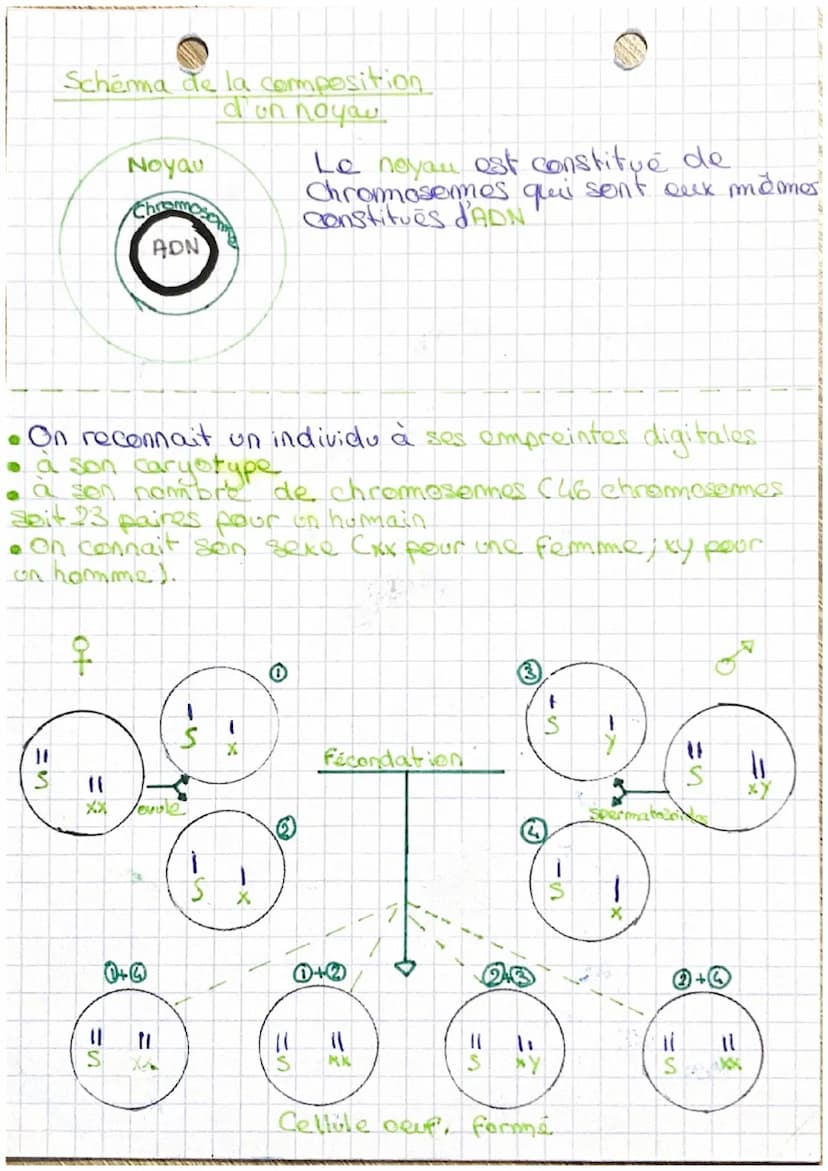 Schéma de la composition
d'un noyau
Noyau
Chromosome
ADN
Le noyau est constitué de
chromosomes qui sont eux mêmes
constitués d'ADN
• On reconnait un individu à ses empreintes digitales
• à son caryotype
• à son nombre de chromosomes (46 chromosomes
soit 23 paires pour un humain
• On connait son sexe (xx pour une femme ; xy pour
un homme).
♀ ① ③ ♂
S x S y
S xx Fécondation S xy
ovule spermatozoïdes
② ④
S x S x
①+④ ①+② ②+③ ②+④
S xx S xx S xy S xx
Cellule oeuf. formé